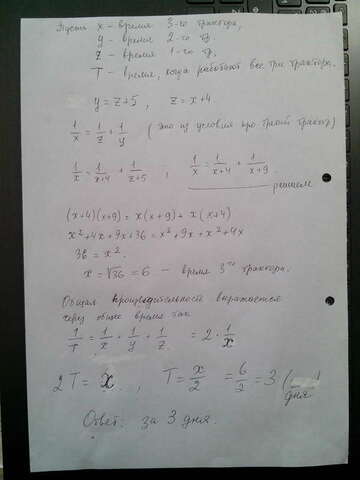 Пусть x - время 3-го трактора,
y - время 2-го тр
z - время 1-го тр.
T - время, когда работают все три трактора.
y = z+5 , z = x+4
1/x = 1/z + 1/y (это из условия про третий трактор)
1/x = 1/(x+4) + 1/(z+5) ; 1/x = 1/(x+4) + 1/(x+9) .
решаем
(x+4)(x+9) = x(x+9) + x(x+4)
x²+4x+9x+36 = x²+9x+x²+4x
36 = x².
x = √36 = 6 - время 3го трактора.
Общая производительность выражается
через общее время так
1/T = 1/x + 1/y + 1/z = 2 · 1/x
2T = x , T = x/2 = 6/2 = 3 ( дня
Ответ: за 3 дня.